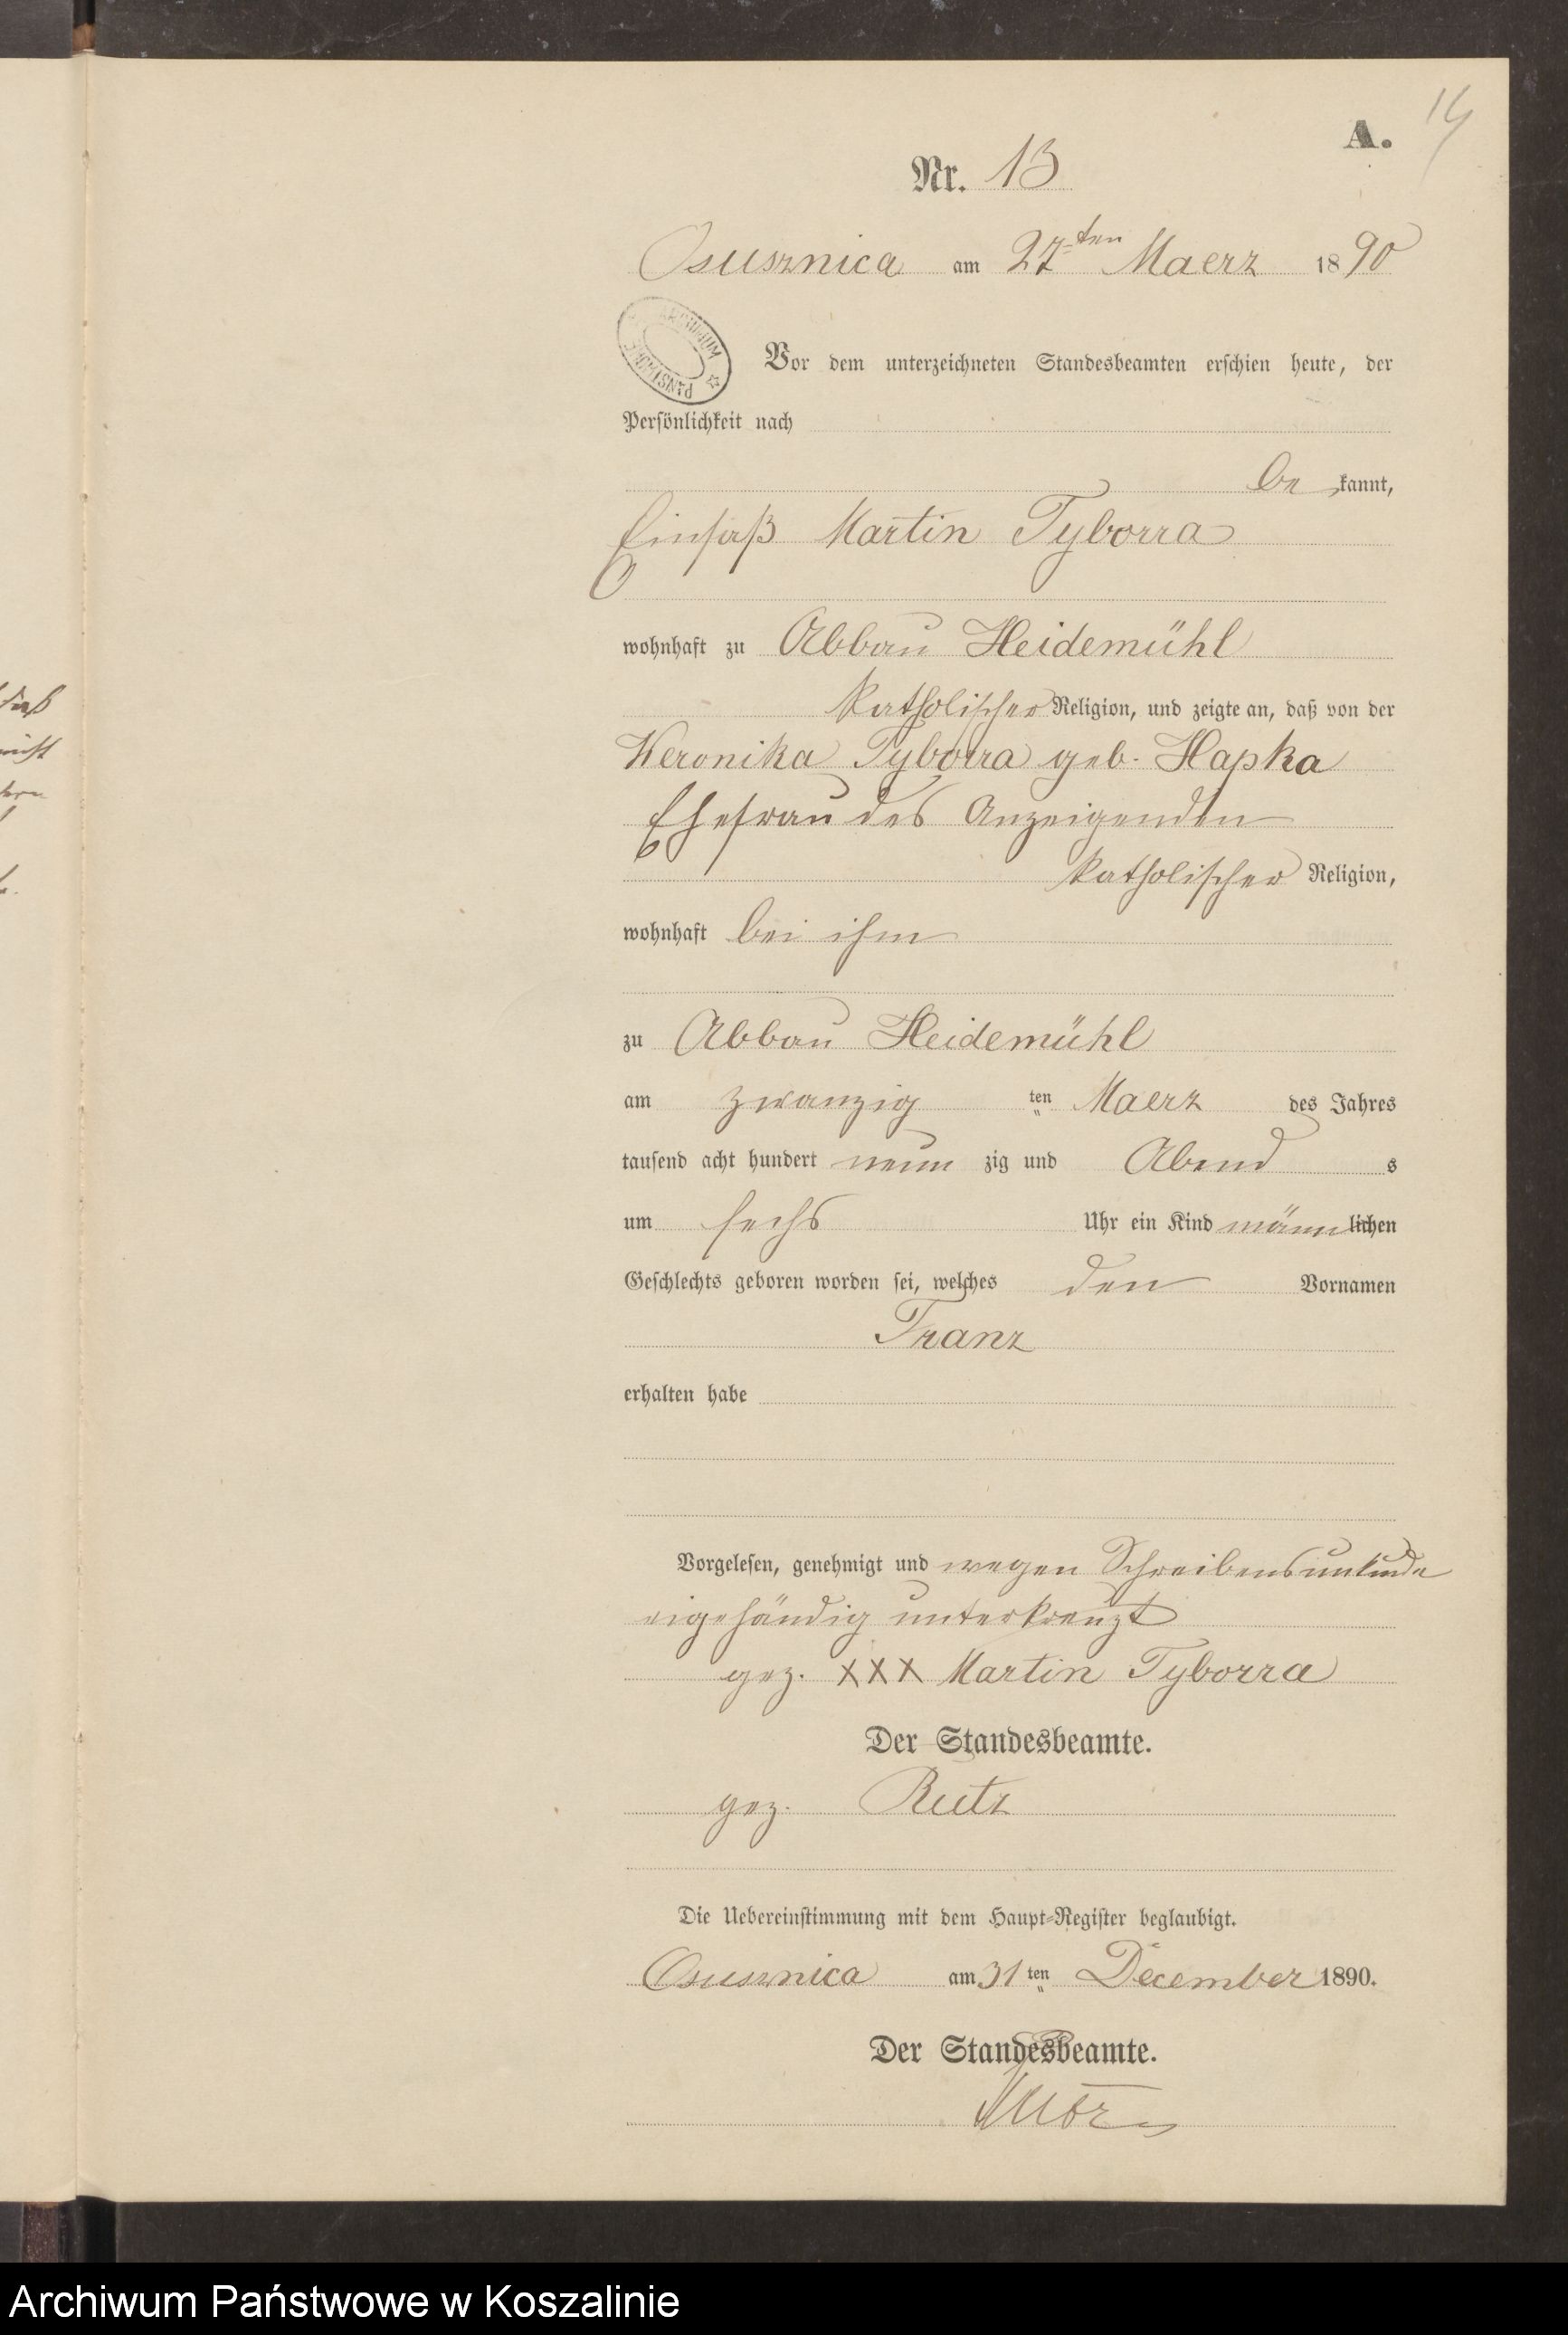 14
A.
Nr. 13
Osusznica am 27ten Maerz 1890
Vor dem unterzeichneten Standesbeamten erschien heute, der
Persönlichkeit nach
be kannt,
Einsaß Martin Tyborra
wohnhaft zu Abbau Heidemühl
katholischer Religion, und zeigte an, daß von der
Weronika Tyborra geb. Hapka
Ehefrau des Anzeigenden
katholischer Religion,
wohnhaft bei ihm
zu Abbau Heidemühl
am zwanzig ten Maerz des Jahres
tausend acht hundert neun zig und Abend s
um sechs Uhr ein Kind männlichen
Geschlechts geboren worden sei, welches den Vornamen
Franz
erhalten habe
Vorgelesen, genehmigt und wegen Schreibensunkunde
eigehändig unterkreuzt
gez. XXX Martin Tyborra
Der Standesbeamte.
gez. Rutz
Die Uebereinstimmung mit dem Haupt-Register beglaubigt.
Osusznica am 31ten December 1890.
Der Standesbeamte.
Archiwum Państwowe w Koszalinie